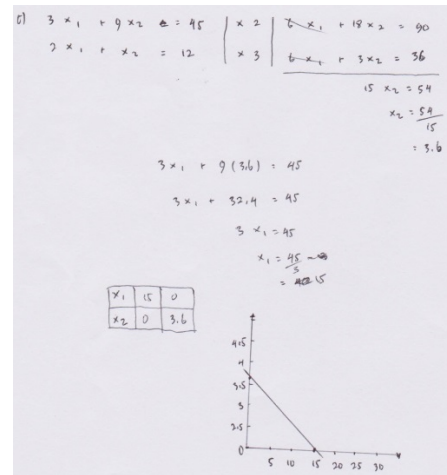 c) 3 x₁ + 9 x₂ = 45 | x 2 | 6 x₁ + 18 x₂ = 90
2 x₁ + x₂ = 12 | x 3 | 6 x₁ + 3 x₂ = 36
15 x₂ = 54
x₂ = 54/15
= 3.6
3 x₁ + 9 (3.6) = 45
3 x₁ + 32,4 = 45
3 x₁ = 45
x₁ = 45/3
= 15
x₁ 15 0
x₂ 0 3.6
4.5
4
3.5
3
2.5
0
5 10 15 20 25 30